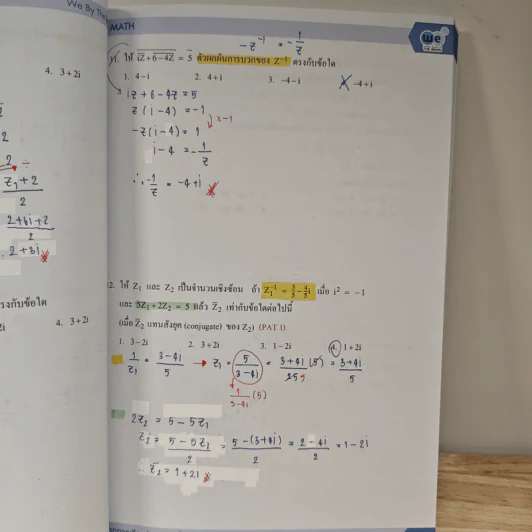 We By The
MATH
we
4. 3+2i
2
2 ÷
Z₁+2
2
2+6i+2
2
2+3i
รงกับข้อใด
2i
4. 3+2i
-z⁻¹ = -1/z
11. ให้ iZ+6-4Z = 5 ตัวผกผันการบวกของ Z⁻¹ ตรงกับข้อใด
1. 4-i 2. 4+i 3. -4-i -4+i
iz+6-4z = 5
z(i-4) = -1
x-1
-z(i-4) = 1
i-4 = -1/z
∴ -1/z = -4+i
2. ให้ Z₁ และ Z₂ เป็นจำนวนเชิงซ้อน ถ้า Z₁⁻¹ = 3/5 - 4i/5 เมื่อ i² = -1
และ 5Z₁+2Z₂ = 5 แล้ว Z̅₂ เท่ากับข้อใดต่อไปนี้
(เมื่อ Z̅₂ แทนสังยุค (conjugate) ของ Z₂) (PAT 1)
1. 3-2i 2. 3+2i 3. 1-2i 4. 1+2i
1/z₁ = 3-4i/5 → z₁ = 5/3-4i = 3+4i/25 (5) = 3+4i/5
1/3-4i (5)
2z₂ = 5 - 5z₁
z₂ = 5-5z₁/2 = 5-(3+4i)/2 = 2-4i/2 = 1-2i
∴ z̅₂ = 1+2i